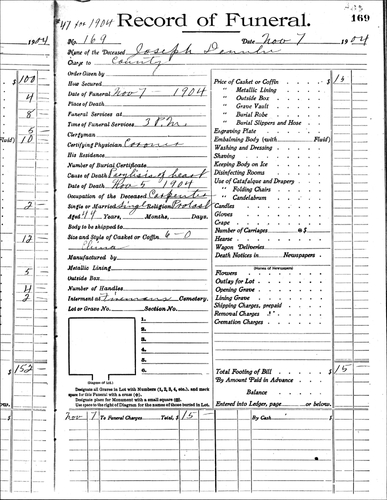 47 for 1904 Record of Funeral. 169
No. 169 Date Nov 7 1904
Name of the Deceased Joseph
Charge to County
Order Given by
How Secured
Date of Funeral Nov 7 - 1904
Place of Death
Funeral Services at
Time of Funeral Services 3 P.M.
Clergyman
Certifying Physician Coroner
His Residence
Number of Burial Certificate
Cause of Death Paralysis of heart
Date of Death Nov 5 1904
Occupation of the Deceased Carpenter
Single or Married Single Religion Protest
Aged 44 Years, Months, Days.
Body to be shipped to
Size and Style of Casket or Coffin 6-0
Manufactured by
Metallic Lining
Outside Box
Number of Handles
Interment at Cemetery.
Lot or Grave No. Section No.
1.
2.
3.
4.
5.
6.
(Diagram of Lot.)
Designate all Graves in Lot with Numbers (1, 2, 3, 4, etc.), and mark
space for this Funeral with a cross (+).
Designate place for Monument with a small square.
Use space to the right of Diagram for the names of those buried in Lot.
Nov 7 To Funeral Charges Total, $ 15 -
Price of Casket or Coffin $ 15
" Metallic Lining
" Outside Box
" Grave Vault
" Burial Robe
" Burial Slippers and Hose
Engraving Plate
Embalming Body (with Fluid)
Washing and Dressing
Shaving
Keeping Body on Ice
Disinfecting Rooms
Use of Catafalque and Drapery
" Folding Chairs
" Candelabrum
Candles
Gloves
Crape
Number of Carriages @ $
Hearse
Wagon Deliveries
Death Notices in Newspapers
(Names of Newspapers)
Flowers
Outlay for Lot
Opening Grave
Lining Grave
Shipping Charges, prepaid
Removal Charges
Cremation Charges
Total Footing of Bill $ 15
By Amount Paid in Advance
Balance
Entered into Ledger, page or below.
By Cash $
1904
$ 100
4
8
5
Fluid) 10
2
12
5
4
2
$ 152